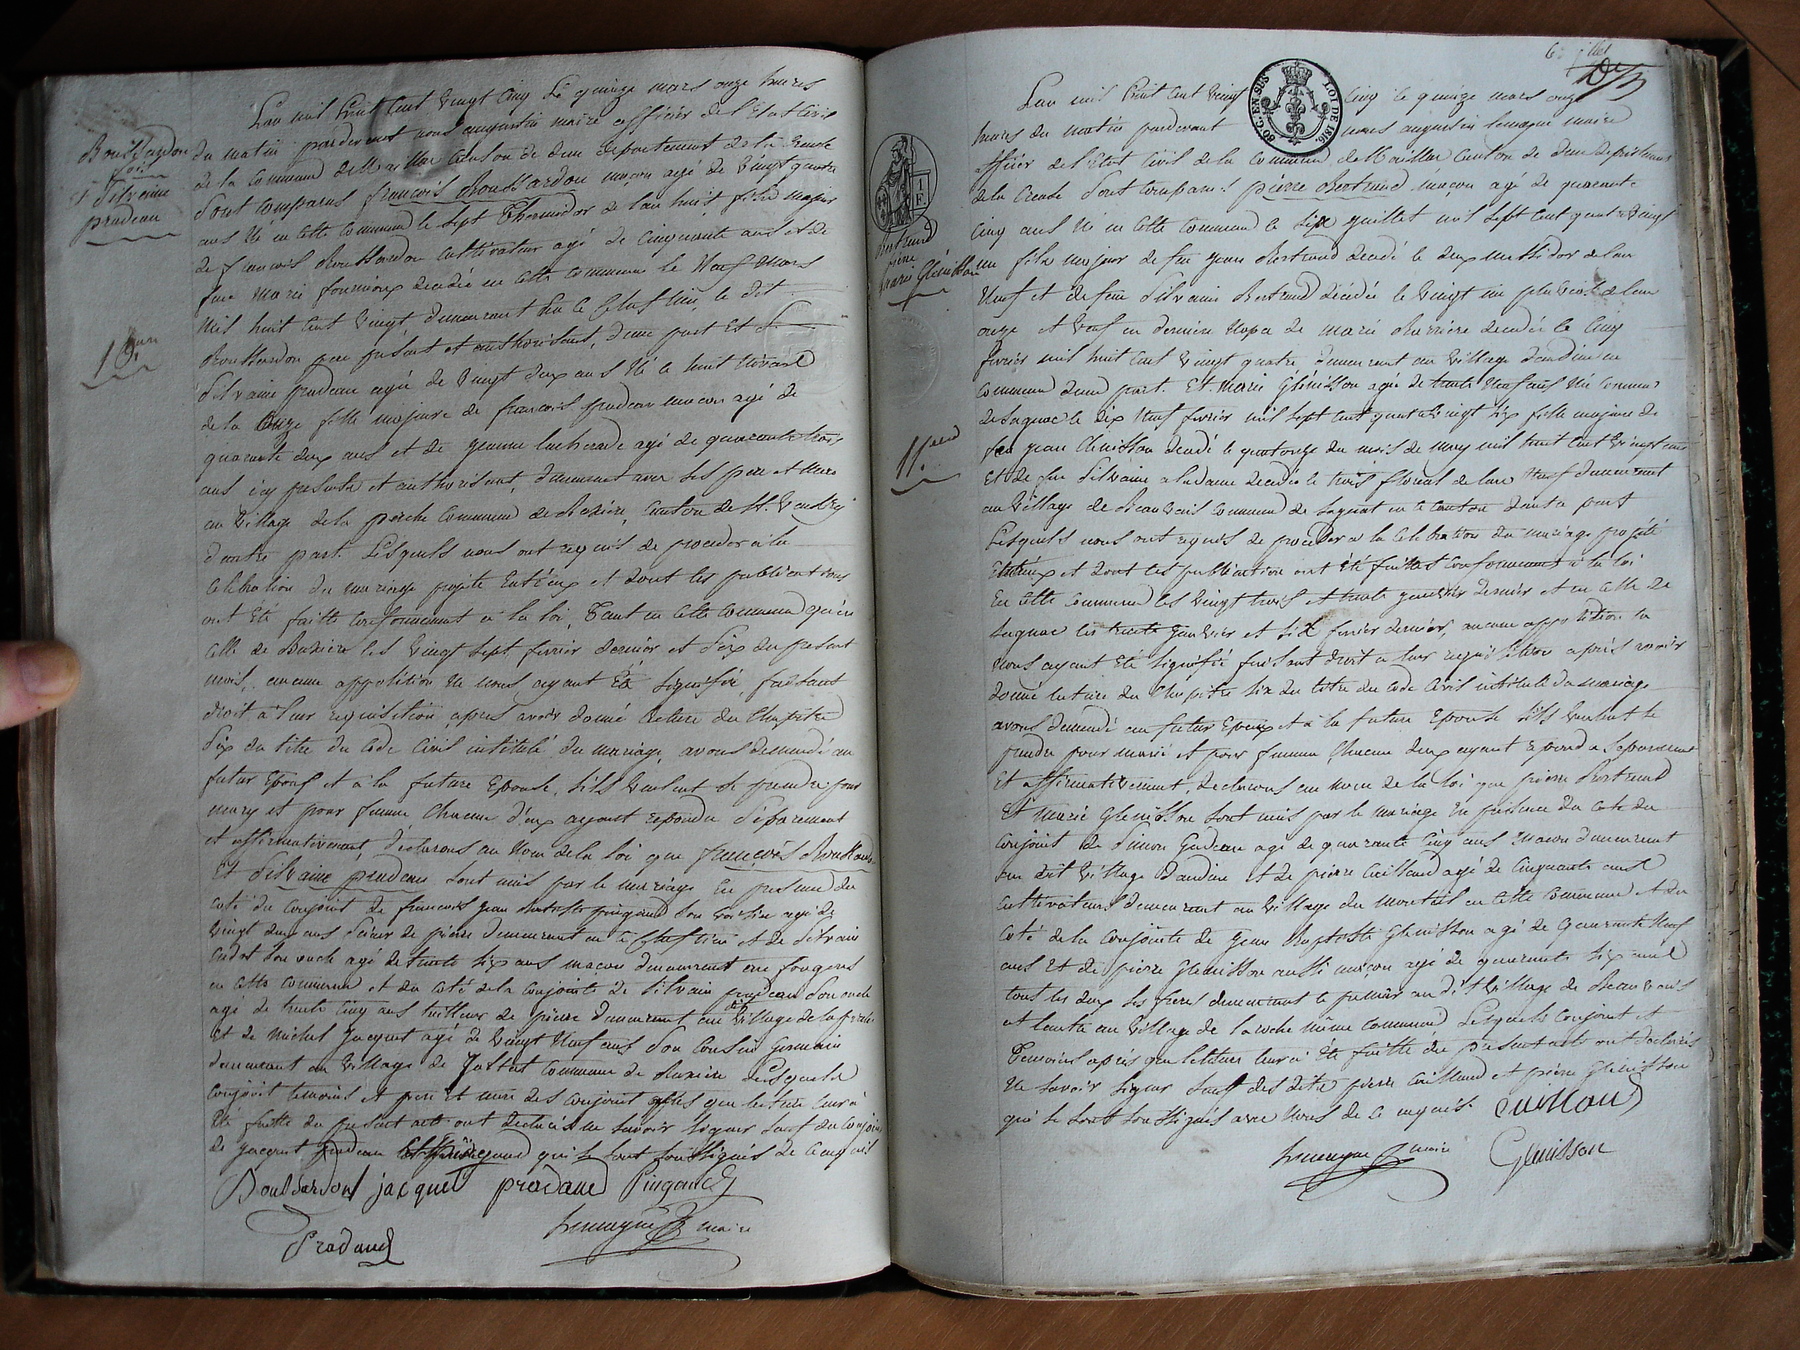 Boussardon
et Silvaine
prudeau
10.
L'an mil huit cent vingt cinq le quinze mars onze heures
du matin pardevant nous augustin maire officier de l'Etat Civil
de la commune de canton de dun departement de la Creuse
sont comparus françois Boussardon maçon agé de vingt quatre
ans né en cette commune le sept Thermidor de l'an huit, fils majeur
de françois Boussardon cultivateur agé de cinquante ans et de
feue Marie décédée en cette commune le neuf mars
mil huit cent vingt demeurant le dit
Boussardon père présent et authorisant, d'une part Et
Silvaine prudeau agée de vingt deux ans née le huit nivose
de la onze fille majeure de françois prudeau maçon agé de
quarante deux ans et de jeanne agé de quarante trois
ans icy présents et authorisant, demeurant avec ses père et mère
au village de la porche commune de Bussière, canton de St. Vaulry
d'autre part. Lesquels nous ont requis de proceder à la
celebration du mariage projeté entr'eux et dont les publications
ont été faitte conformement à la loi, tant en cette commune qu'en
celle de Bussière les vingt sept fevrier dernier et six du présent
mois, aucune opposition ne nous ayant été signifié, faisant
droit à leur requisition, apres avoir donné lecture du Chapitre
Six du titre du Code Civil intitulé du mariage, avons demandé au
futur Epoux et à la future Epouse, s'ils veulent se prendre pour
mary et pour femme chacun d'eux ayant repondu séparement
et affirmativement, déclarons au nom de la loi que françois Boussardon
Et Silvaine prudeau sont unis par le mariage En presence du
coté du conjoint de françois jean pingaud son agé de
vingt deux ans de pierre demeurant et de Silvain
son oncle agé de trente six ans maçon demeurant
en cette commune et du coté de la conjointe de Silvain prudeau son oncle
agé de trente cinq ans tailleur de pierre demeurant au village de la
et de Michel jacquet agé de vingt neuf ans son cousin germain
demeurant au village de commune de Bussière Lesquels
conjoint temoins et père et mère des conjoint après que lecture leur a
été faitte du présent acte ont declarés ne savoir signer sauf du conjoint
de jacquet prudeau et pingaud qui se sont soussignés de ce requis
Boussardon jacquet pradaud Pingaud
maire
Pradaud
60 C. EN SUS
LOI DE 1816
Bertrand
pierre
marie Glénisson
11.
L'an mil huit cent vingt cinq le quinze mars onze
heures du matin pardevant nous augustin maire
officier de l'Etat Civil de la commune de canton de dun departement
de la Creuse sont comparus pierre Bertrand maçon agé de quarante
cinq ans né en cette commune le six juillet mil sept cent quatre vingt
un fils majeur de feu jean Bertrand décédé le deux messidor de l'an
neuf et de feue Silvaine Bertrand décédée le vingt un pluviose de l'an
onze et veuf en dernière de marie décédée le cinq
fevrier mil huit cent vingt quatre, demeurant au village
commune d'une part. Et Marie Glénisson agée de trente neuf ans née commune
de Sagnac le dix neuf fevrier mil sept cent quatre vingt six fille majeure de
feu jean Glenisson décédé le quatorze du mois de may mil huit cent
Et de feue Silvaine décédée le trois floreal de l'an neuf demeurant
au village de Beauvais commune de Sagnat en ce canton d'autre part
Lesquels nous ont requis de procéder à la celebration du mariage projeté
Entr'eux et dont les publication ont été faittes conformement à la loi
En cette commune les vingt trois et trente janvier dernier et en celle de
Sagnac les trente janvier et six fevrier dernier, aucune opposition ne
nous ayant été signifié faisant droit à leur requisition après avoir
donné lecture du Chapitre six du titre du Code Civil intitulé du mariage
avons demandé au futur Epoux et à la future Epouse s'ils veulent se
prendre pour mari et pour femme chacun d'eux ayant repondu séparement
Et affirmativement, declarons au nom de la loi que pierre Bertrand
Et Marie Glenisson sont unis par le mariage En présence du coté du
conjoint de Simon agé de quarante cinq ans maçon demeurant
au dit village et de pierre Cuilland agé de cinquante ans
cultivateurs demeurant au village du montiel en cette commune et du
coté de la conjointe de jean Baptiste Glenisson agé de quarante neuf
ans et de pierre Glenisson aussi maçon agé de quarante six ans
tous les deux ses freres demeurant le premier au dit village de Beauvais
et l'autre au village de la roche même commune, Lesquels conjoint et
temoins après que lecture leur a été faitte du présent acte ont declarés
ne savoir signer sauf des dits pierre Cuilland et pierre Glenisson
qui se sont soussignés avec nous de ce requis.
Cuilland
maire
Glenisson